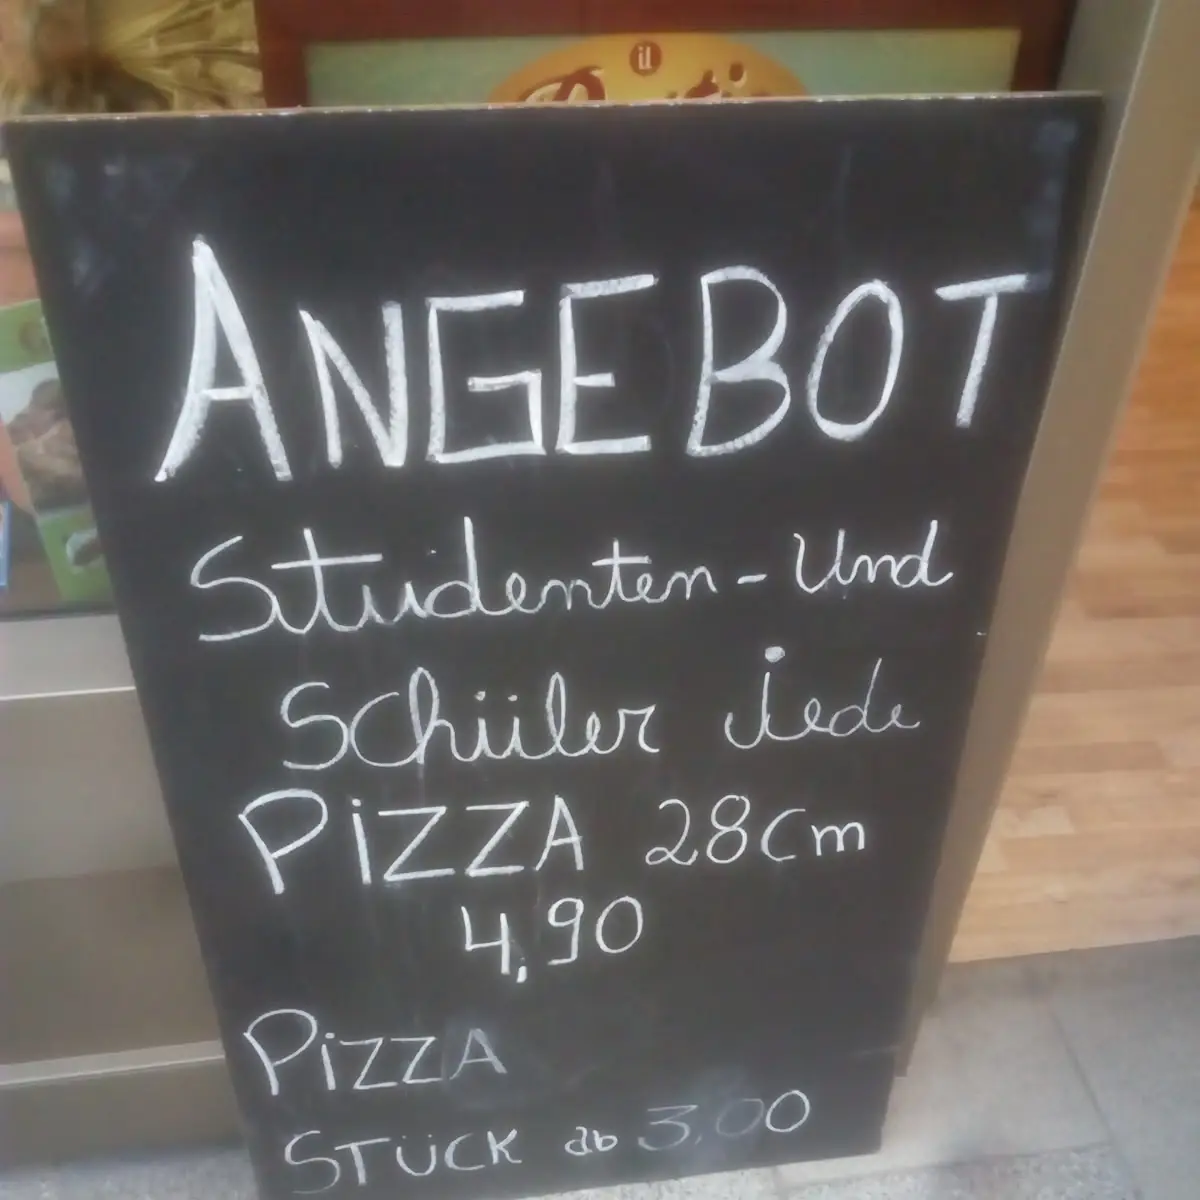 il
ANGEBOT
Studenten- Und
Schüler jede
PiZZA 28cm
4,90
PiZZA
STÜCK ab 3,00